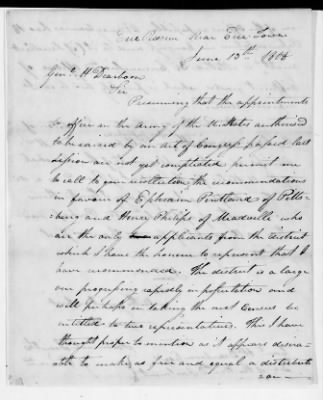 Near Erie Town
June 13th 1808
Genl. H Dearborn
Sir
Presuming that the appointments
to offices in the army of the UStates authorised
to be raised by an act of Congress passed last
session are not yet completed permit me
to call to your recollection the recommendations
in favour of Ephraim Pentland of Pitts
burg and Henry Philips of Meadville who
are the only applicants from the district
which I have the honour to represent that I
have recommended. The district is a large
one progressing rapidly in population and
will perhaps in taking the next Census be
entitled to two representatives. This I have
thought proper to mention as it appears desira-
able to make as fair and equal a distribute